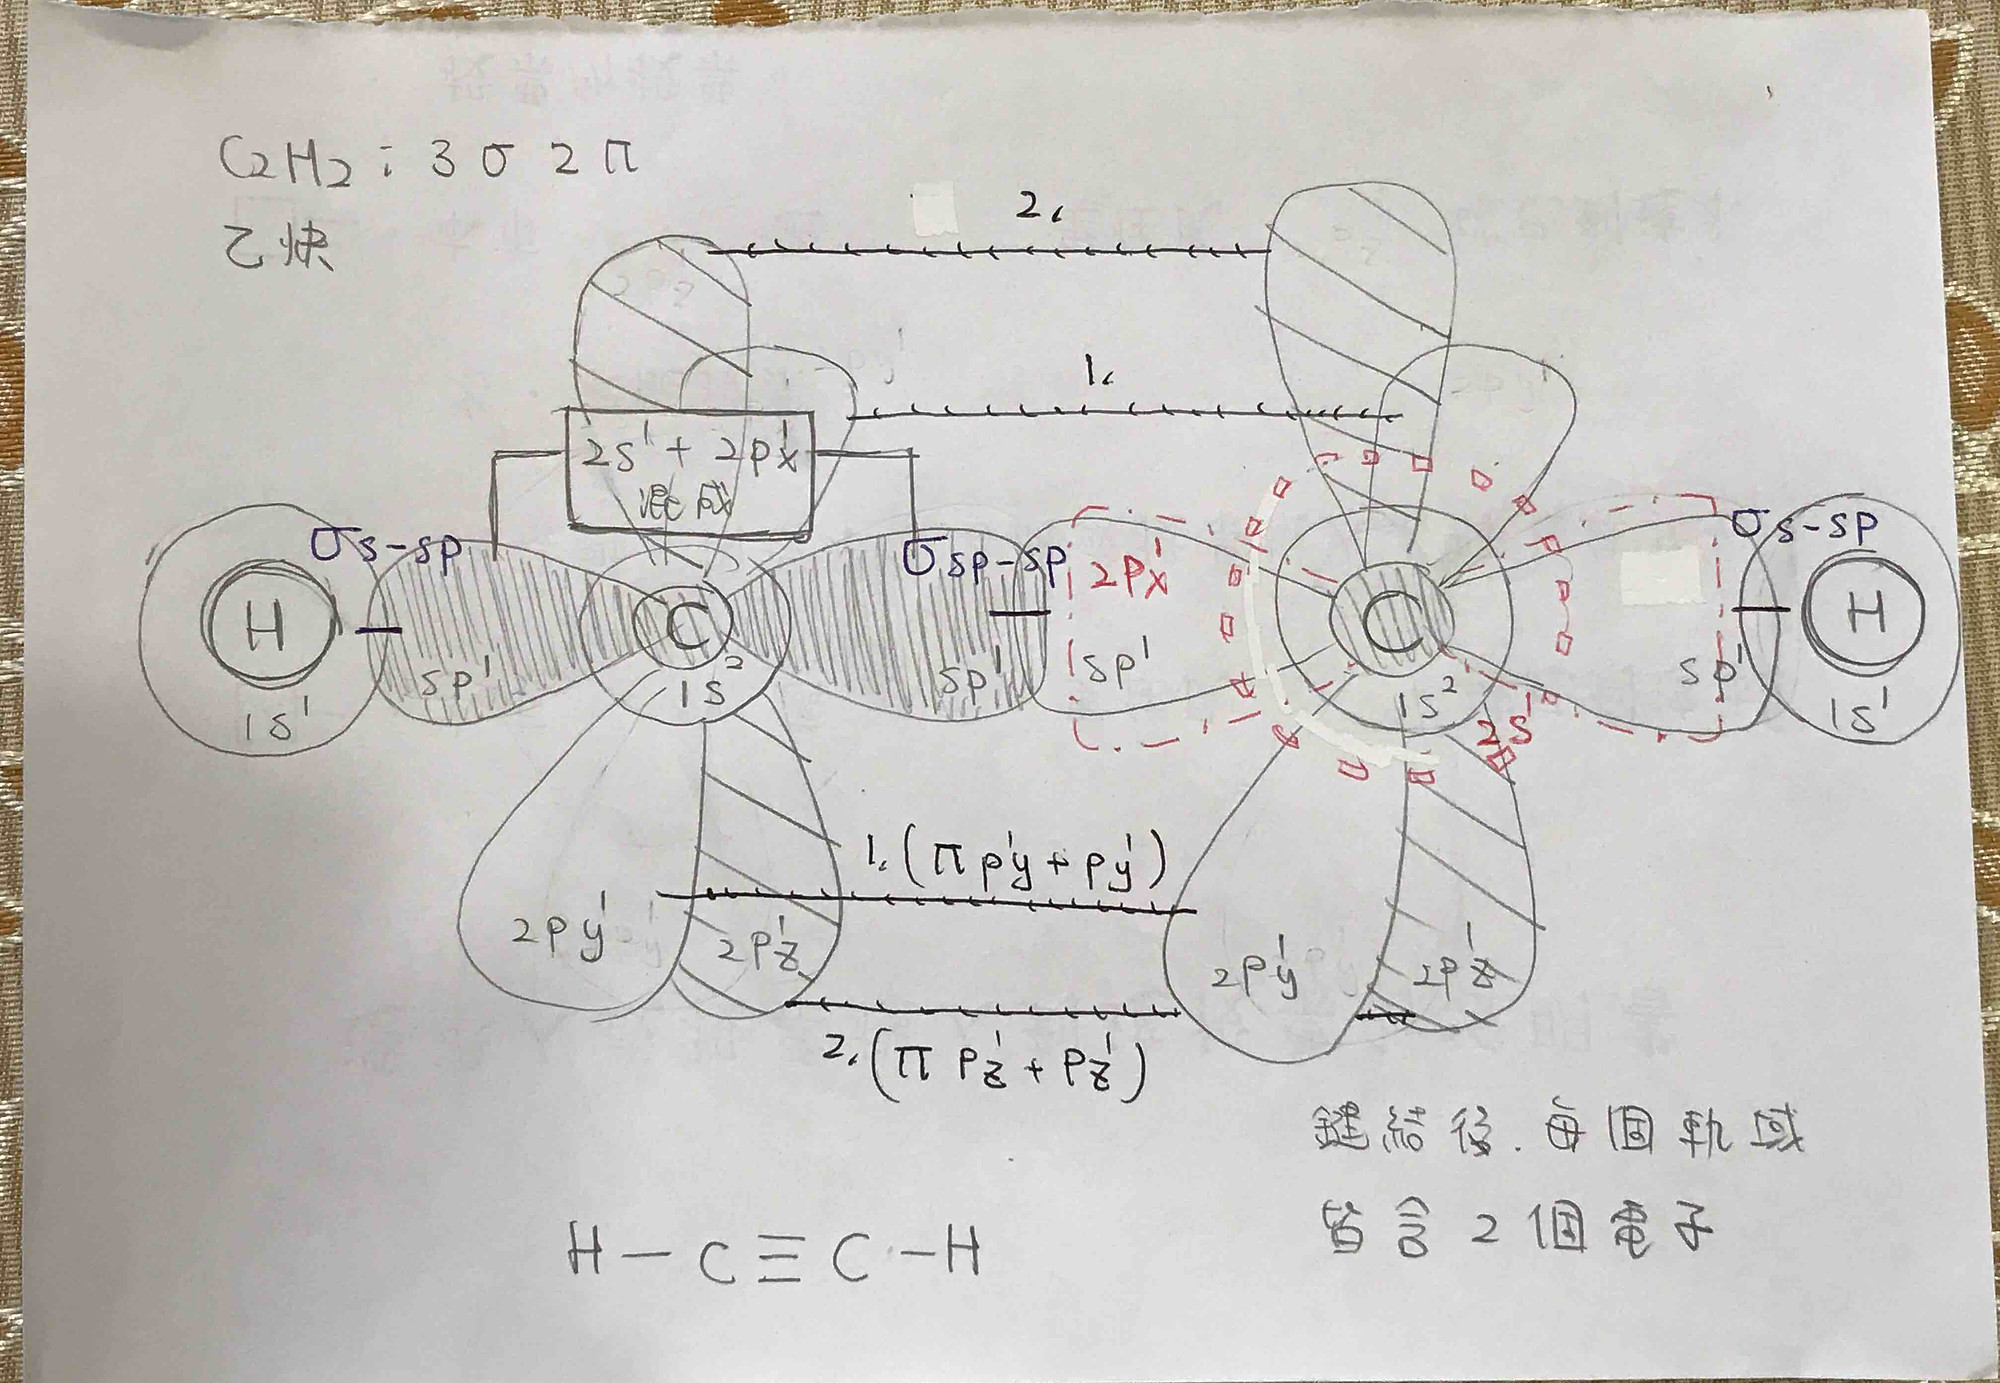 C₂H₂：3σ2π
乙炔
2.
1.
2s¹ + 2px¹
混成
σs-sp
σsp-sp
σs-sp
2px¹
H
C
C
H
sp¹
sp¹
sp¹
sp¹
1s¹
1s²
1s²
2s¹
1s¹
1.(π py¹ + py¹)
2py¹
2pz¹
2py¹
2pz¹
2.(π pz¹ + pz¹)
鍵結後.每個軌域
皆含2個電子
H－C≡C－H